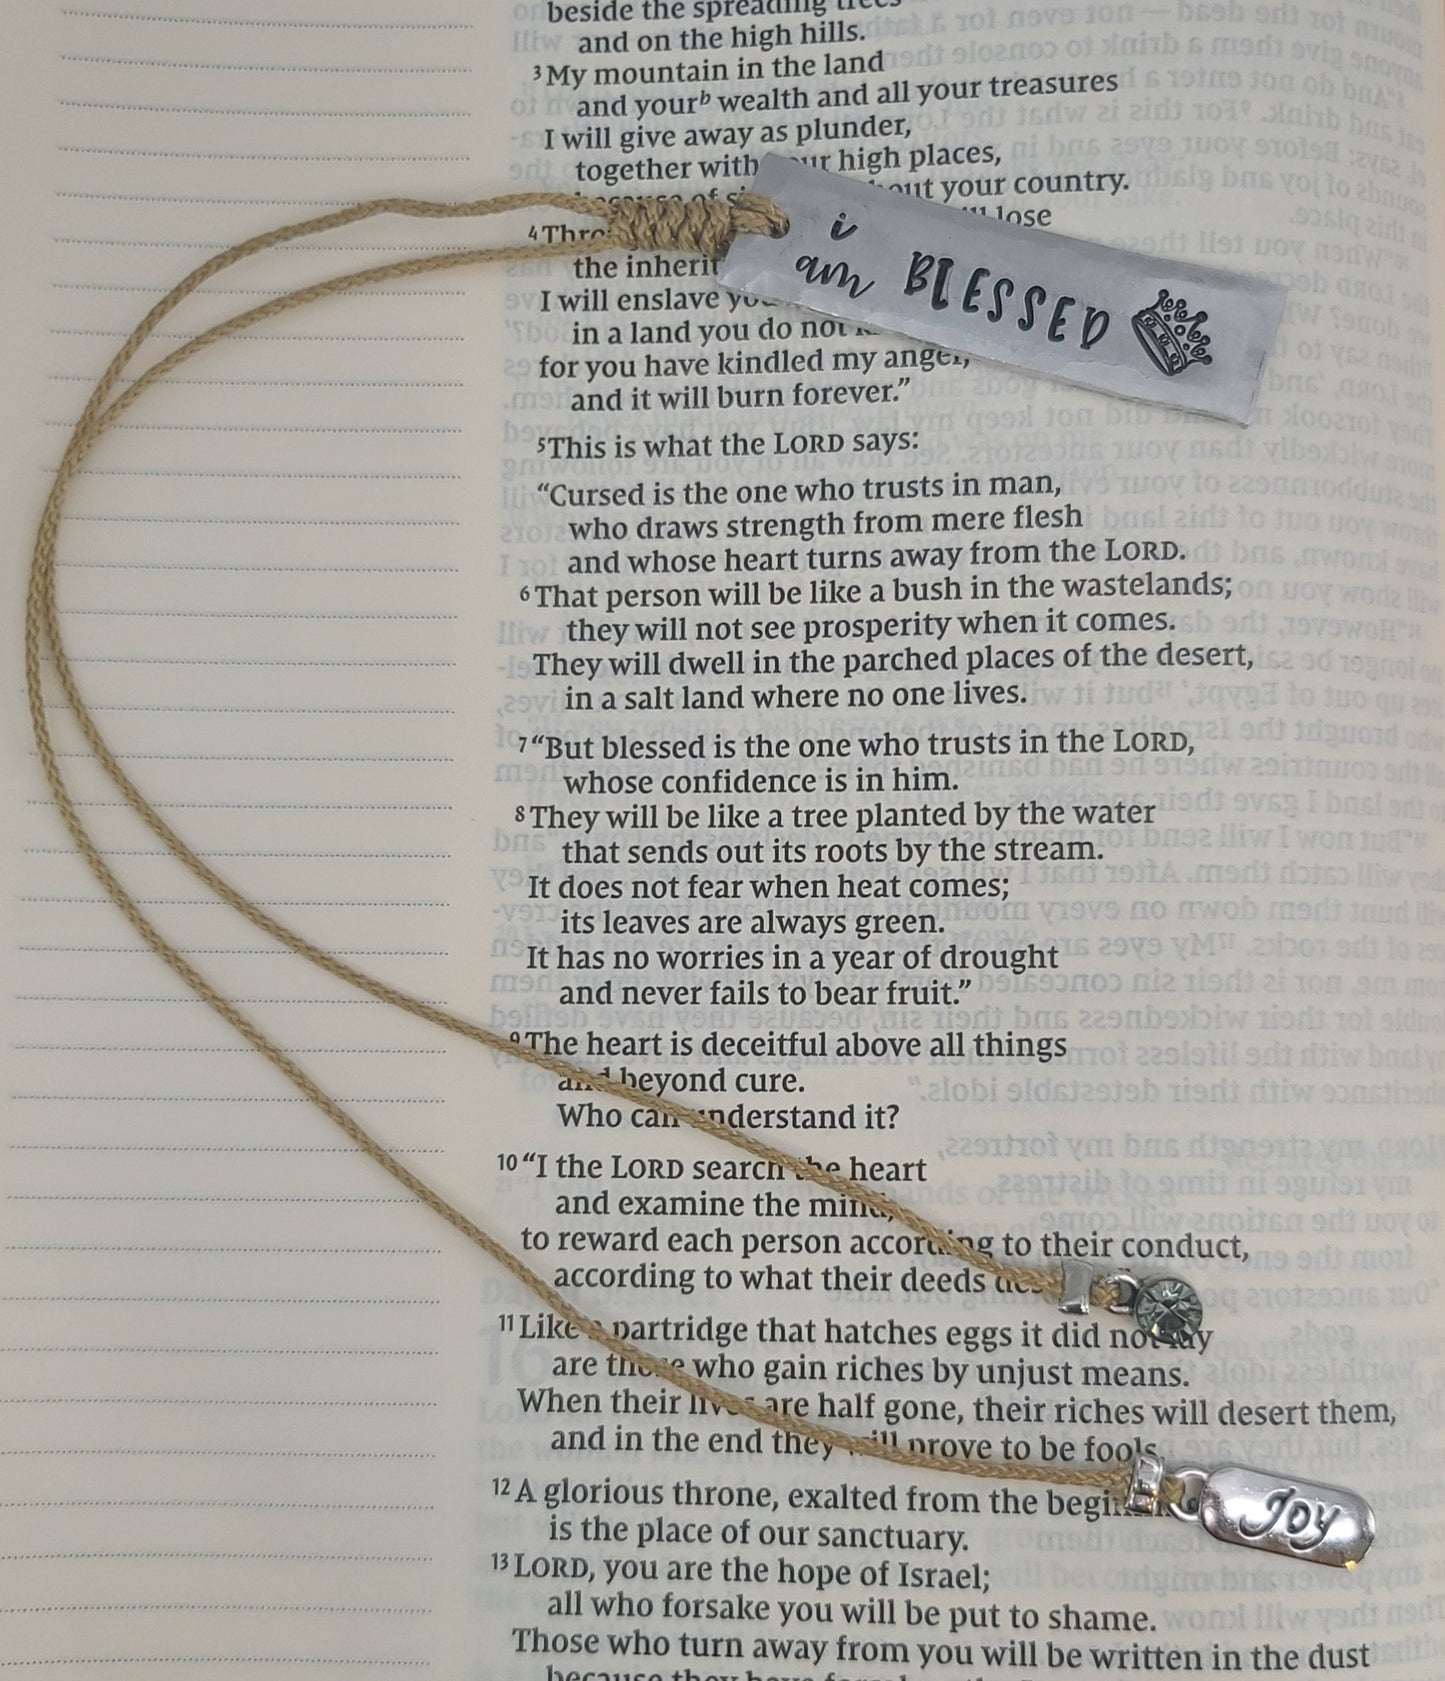 beside the spreading trees
and on the high hills.
3 My mountain in the land
and your b wealth and all your treasures
I will give away as plunder,
together with your high places,
because of si out your country.
4 Thro ll lose
the inherit
I will enslave yo
in a land you do not
for you have kindled my anger,
and it will burn forever.”
5 This is what the LORD says:
“Cursed is the one who trusts in man,
who draws strength from mere flesh
and whose heart turns away from the LORD.
6 That person will be like a bush in the wastelands;
they will not see prosperity when it comes.
They will dwell in the parched places of the desert,
in a salt land where no one lives.
7 “But blessed is the one who trusts in the LORD,
whose confidence is in him.
8 They will be like a tree planted by the water
that sends out its roots by the stream.
It does not fear when heat comes;
its leaves are always green.
It has no worries in a year of drought
and never fails to bear fruit.”
9 The heart is deceitful above all things
and beyond cure.
Who can understand it?
10 “I the LORD search the heart
and examine the mind,
to reward each person according to their conduct,
according to what their deeds des
11 Like a partridge that hatches eggs it did not lay
are those who gain riches by unjust means.
When their lives are half gone, their riches will desert them,
and in the end they will prove to be fools.
12 A glorious throne, exalted from the begin
is the place of our sanctuary.
13 LORD, you are the hope of Israel;
all who forsake you will be put to shame.
Those who turn away from you will be written in the dust
because they have
i
am BLESSED
Joy